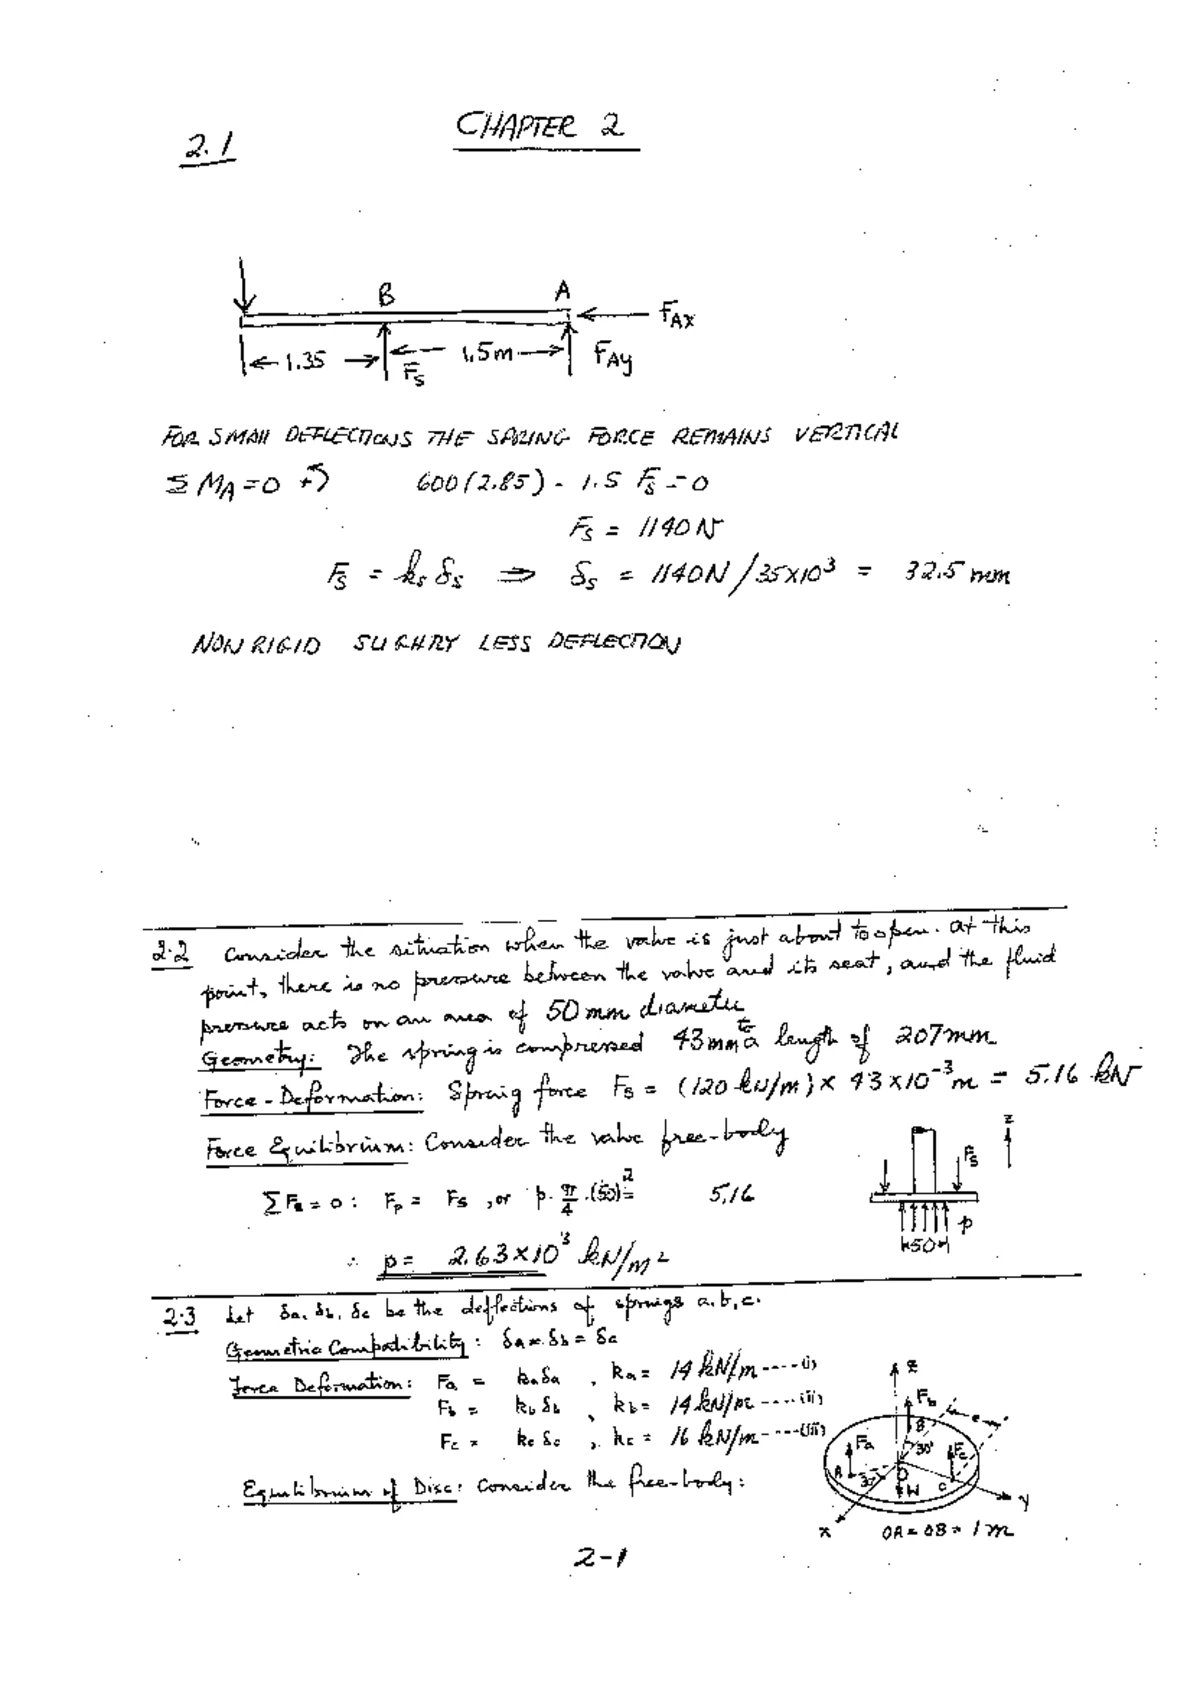 CHAPTER 2
2.1
B A
FAx
1.35 1.5m FAy
Fs
FOR SMALL DEFLECTIONS THE SPRING FORCE REMAINS VERTICAL
Σ MA = 0 600(2.85) - 1.5 Fs = 0
Fs = 1140 N
Fs = ks δs ⇒ δs = 1140N / 35x10³ = 32.5 mm
NON RIGID SLIGHTLY LESS DEFLECTION
2.2 Consider the situation when the valve is just about to open. At this
point, there is no pressure between the valve and its seat, and the fluid
pressure acts on an area of 50 mm diameter
Geometry: The spring is compressed 43mm to a length of 207mm
Force-Deformation: Spring force Fs = (120 kN/m) x 43x10⁻³m = 5.16 kN
Force Equilibrium: Consider the valve free-body
z
Fs
ΣFz = 0: Fp = Fs, or p. π/4 .(50)² = 5.16
p
50
∴ p = 2.63 x 10³ kN/m²
2.3 Let δa, δb, δc be the deflections of springs a, b, c.
Geometric Compatibility: δa = δb = δc
Force Deformation: Fa = ka δa , ka = 14 kN/m ----- (i)
Fb = kb δb , kb = 14 kN/m ---- (ii)
Fc = kc δc , kc = 16 kN/m ---- (iii)
Equilibrium of Disc: Consider the free-body:
z
Fb
B
Fa 30° Fc
A 30° O
W C
y
x OA = OB = 1 m
2-1